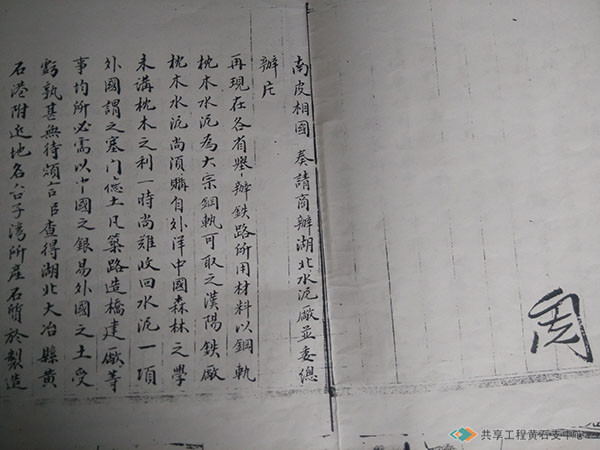 南皮相國 奏請商辦湖北水泥廠並委總
辦片
再現在各省舉辦鉄路所用材料以鋼軌
枕木水泥為大宗鋼軌可取之漢陽鉄廠
枕木水泥尚須購自外洋中國森林之學
未講枕木之利一時尚難收回水泥一項
外國謂之塞門德土凡築路造橋建廠等
事均所必需以中國之銀易外國之土受
虧孰甚無待煩言臣查得湖北大冶縣黃
石港附近地名台子灣所產石質於製造
周
共享工程黄石支中心